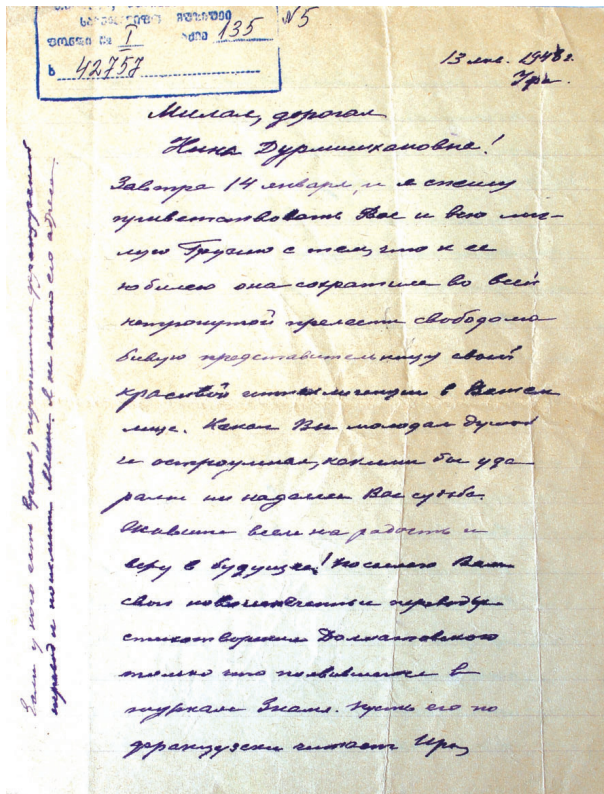 ფონდი № I 135 №5
ხ 42757
13 янв. 1948 г.
Уфа.
Милая, дорогая
Нина Дурмишхановна!
Завтра 14 января, и я спешу
приветствовать Вас и всю ми-
лую Грузию с тем, что к ее
юбилею она сохранила во всей
нетронутой прелести свободолю
бивую представительницу своей
красивой интеллигенции в Вашем
лице. Какая Вы молодая душой
и остроумная, какими бы уда
рами ни наделяла Вас судьба.
Живите всем на радость и
веру в будущее! Посылаю Вам
свои новоиспеченные переводы
стихотворения Долматовского
только что появившиеся в
журнале Знамя. Пусть его по
французски читает Ира,
Если у кого есть время, перепишите французский
перевод и пошлите Мише. я не знаю его адреса.